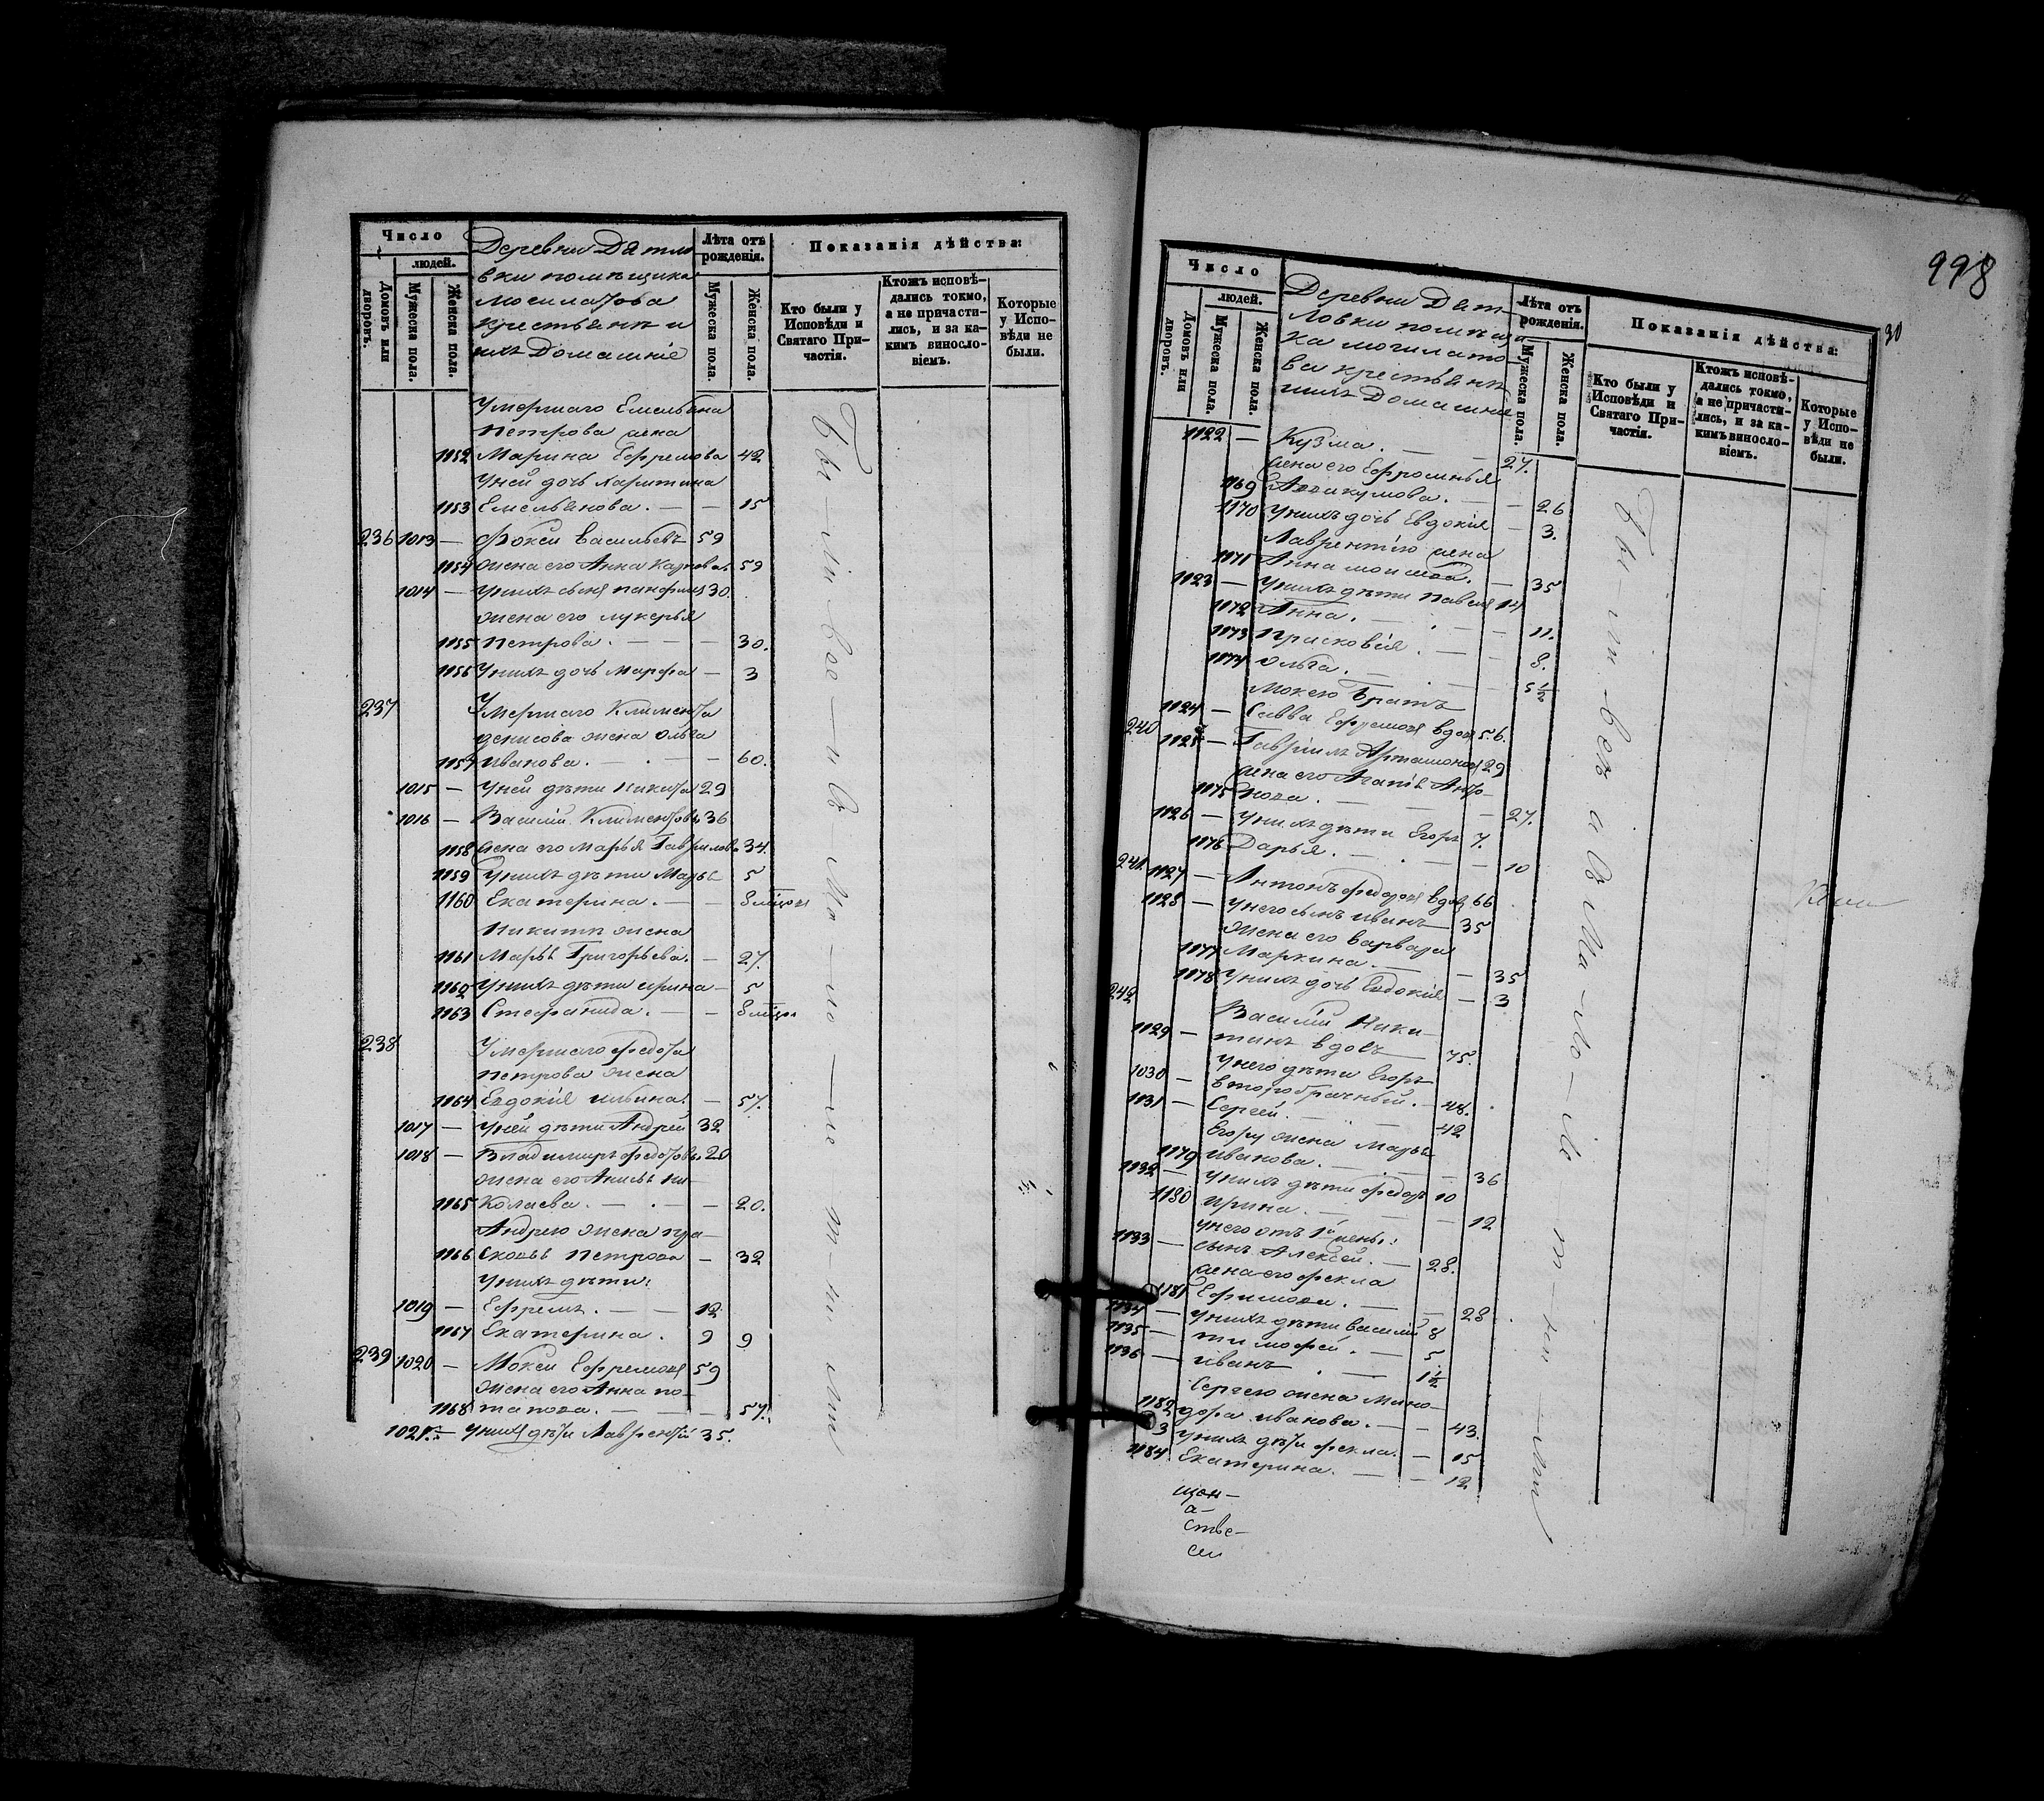 Число
людей.
Домовъ или дворовъ.
Мужеска пола.
Женска пола.
Деревни Датло
вки помѣщика
Могилатова
крестьянѣ и
ихъ Домашніе
Лѣта отъ рожденія.
Мужеска пола.
Женска пола.
Показанія дѣйства:
Кто были у Исповѣди и Святаго Причастія.
Ктожъ исповѣдались токмо, а не причастились, и за какимъ винословіемъ.
Которые у Исповѣди не были.
Умершаго Емельяна
Петрова жена
1152 Марина Ефремова 42
У ней дочь Харитина
1153 Емельянова. — — 15
236 1013 — Фокей Васильевъ 59
1154 жена его Анна 59
1014 — У нихъ сынъ Панфилъ 30.
жена его Лукерья
1155 Петрова. — — — 30.
1156 У нихъ дочь Марфа — 3
237 Умершаго Климента
Денисова жена Ольга
1157 Иванова. — . — — 60.
1015 — У ней дѣти Никита 29
1016 — Василій Климентовъ 36
1158 жена его Марья Гаврилова 34.
1159 У нихъ дѣти Марья 5
1160 Екатерина. — —
Никитѣ жена
1161 Марья Григорьева. — 27.
1162 У нихъ дѣти Ирина — 5
1163 Стефанида. — —
238 Умершаго Федота
Петрова жена
1164 Евдокія Ильина. — 57.
1017 — У ней дѣти Андрей 32
1018 — Владимиръ Федотовъ 20
жена его Анисья Ни-
1165 колаева. — . — — 20.
Андрею жена Пра-
1166 сковья Петрова — 32
У нихъ дѣти:
1019 — Ефремъ. — — 12
1167 Екатерина. 9 9
239 1020 — Мокей Ефремовъ 59
жена его Анна По-
1168 тапова. — — — 57.
1021. — У нихъ дѣти Лаврентій 35.
998
30
Число
людей.
Домовъ или дворовъ.
Мужеска пола.
Женска пола.
Деревни Дат-
ловки помѣщи-
ка Могилато
ва крестьянѣ
и ихъ Домашніе
Лѣта отъ рожденія.
Мужеска пола.
Женска пола.
Показанія дѣйства:
Кто были у Исповѣди и Святаго Причастія.
Ктожъ исповѣдались токмо, а не причастились, и за какимъ винословіемъ.
Которые у Исповѣди не были.
1122 — Кузма. — — 27.
жена его Ефросинья
1169 Аввакумова. — — 26
1170 У нихъ дочь Евдокія — 3.
Лаврентію жена
1171 Анна — 35
1123 — У нихъ дѣти Павелъ 14
1172 Анна. — . — — 11.
1173 Прасковія. — — 8.
1174 Ольга. — . — — 5½
Мокею Братъ
1124 — Савва Ефремовъ вдовъ 56.
240 1125 — Гавріилъ Артамоновъ 29
жена его Агапія Анто-
1175 нова. — — 27.
1126 — У нихъ дѣти Егоръ 7.
1176 Дарья. — . — — 10
241. 1127 — Антонъ Федоровъ вдовъ 66
1128 — У него сынъ Иванъ 35
жена его Варвара
1177 Маркина. — — 35
1178 У нихъ дочь Евдокія — 3
242 Василій Ники-
1129 — тинъ вдовъ 75.
У него дѣти Егоръ
1030 — второбрачный. — 48.
1131 — Сергей. — — 42
Егору жена Марья
1179 Иванова. — . — — 36
1132 — У нихъ дѣти Федоръ 10
1180 Ирина. — — — 12
У него отъ 1й жены:
1133 — сынъ Алексей. — 28.
жена его Фекла
1181 Ефимова. — — 28
1134 — У нихъ дѣти Василій 8
1135 — Тимофей. — 5
1136 — Иванъ . — 1½
Сергею жена Мино-
1182 дора Иванова. — — 43.
3 У нихъ дѣти Фекла. — 15
1184 Екатерина. — — 12